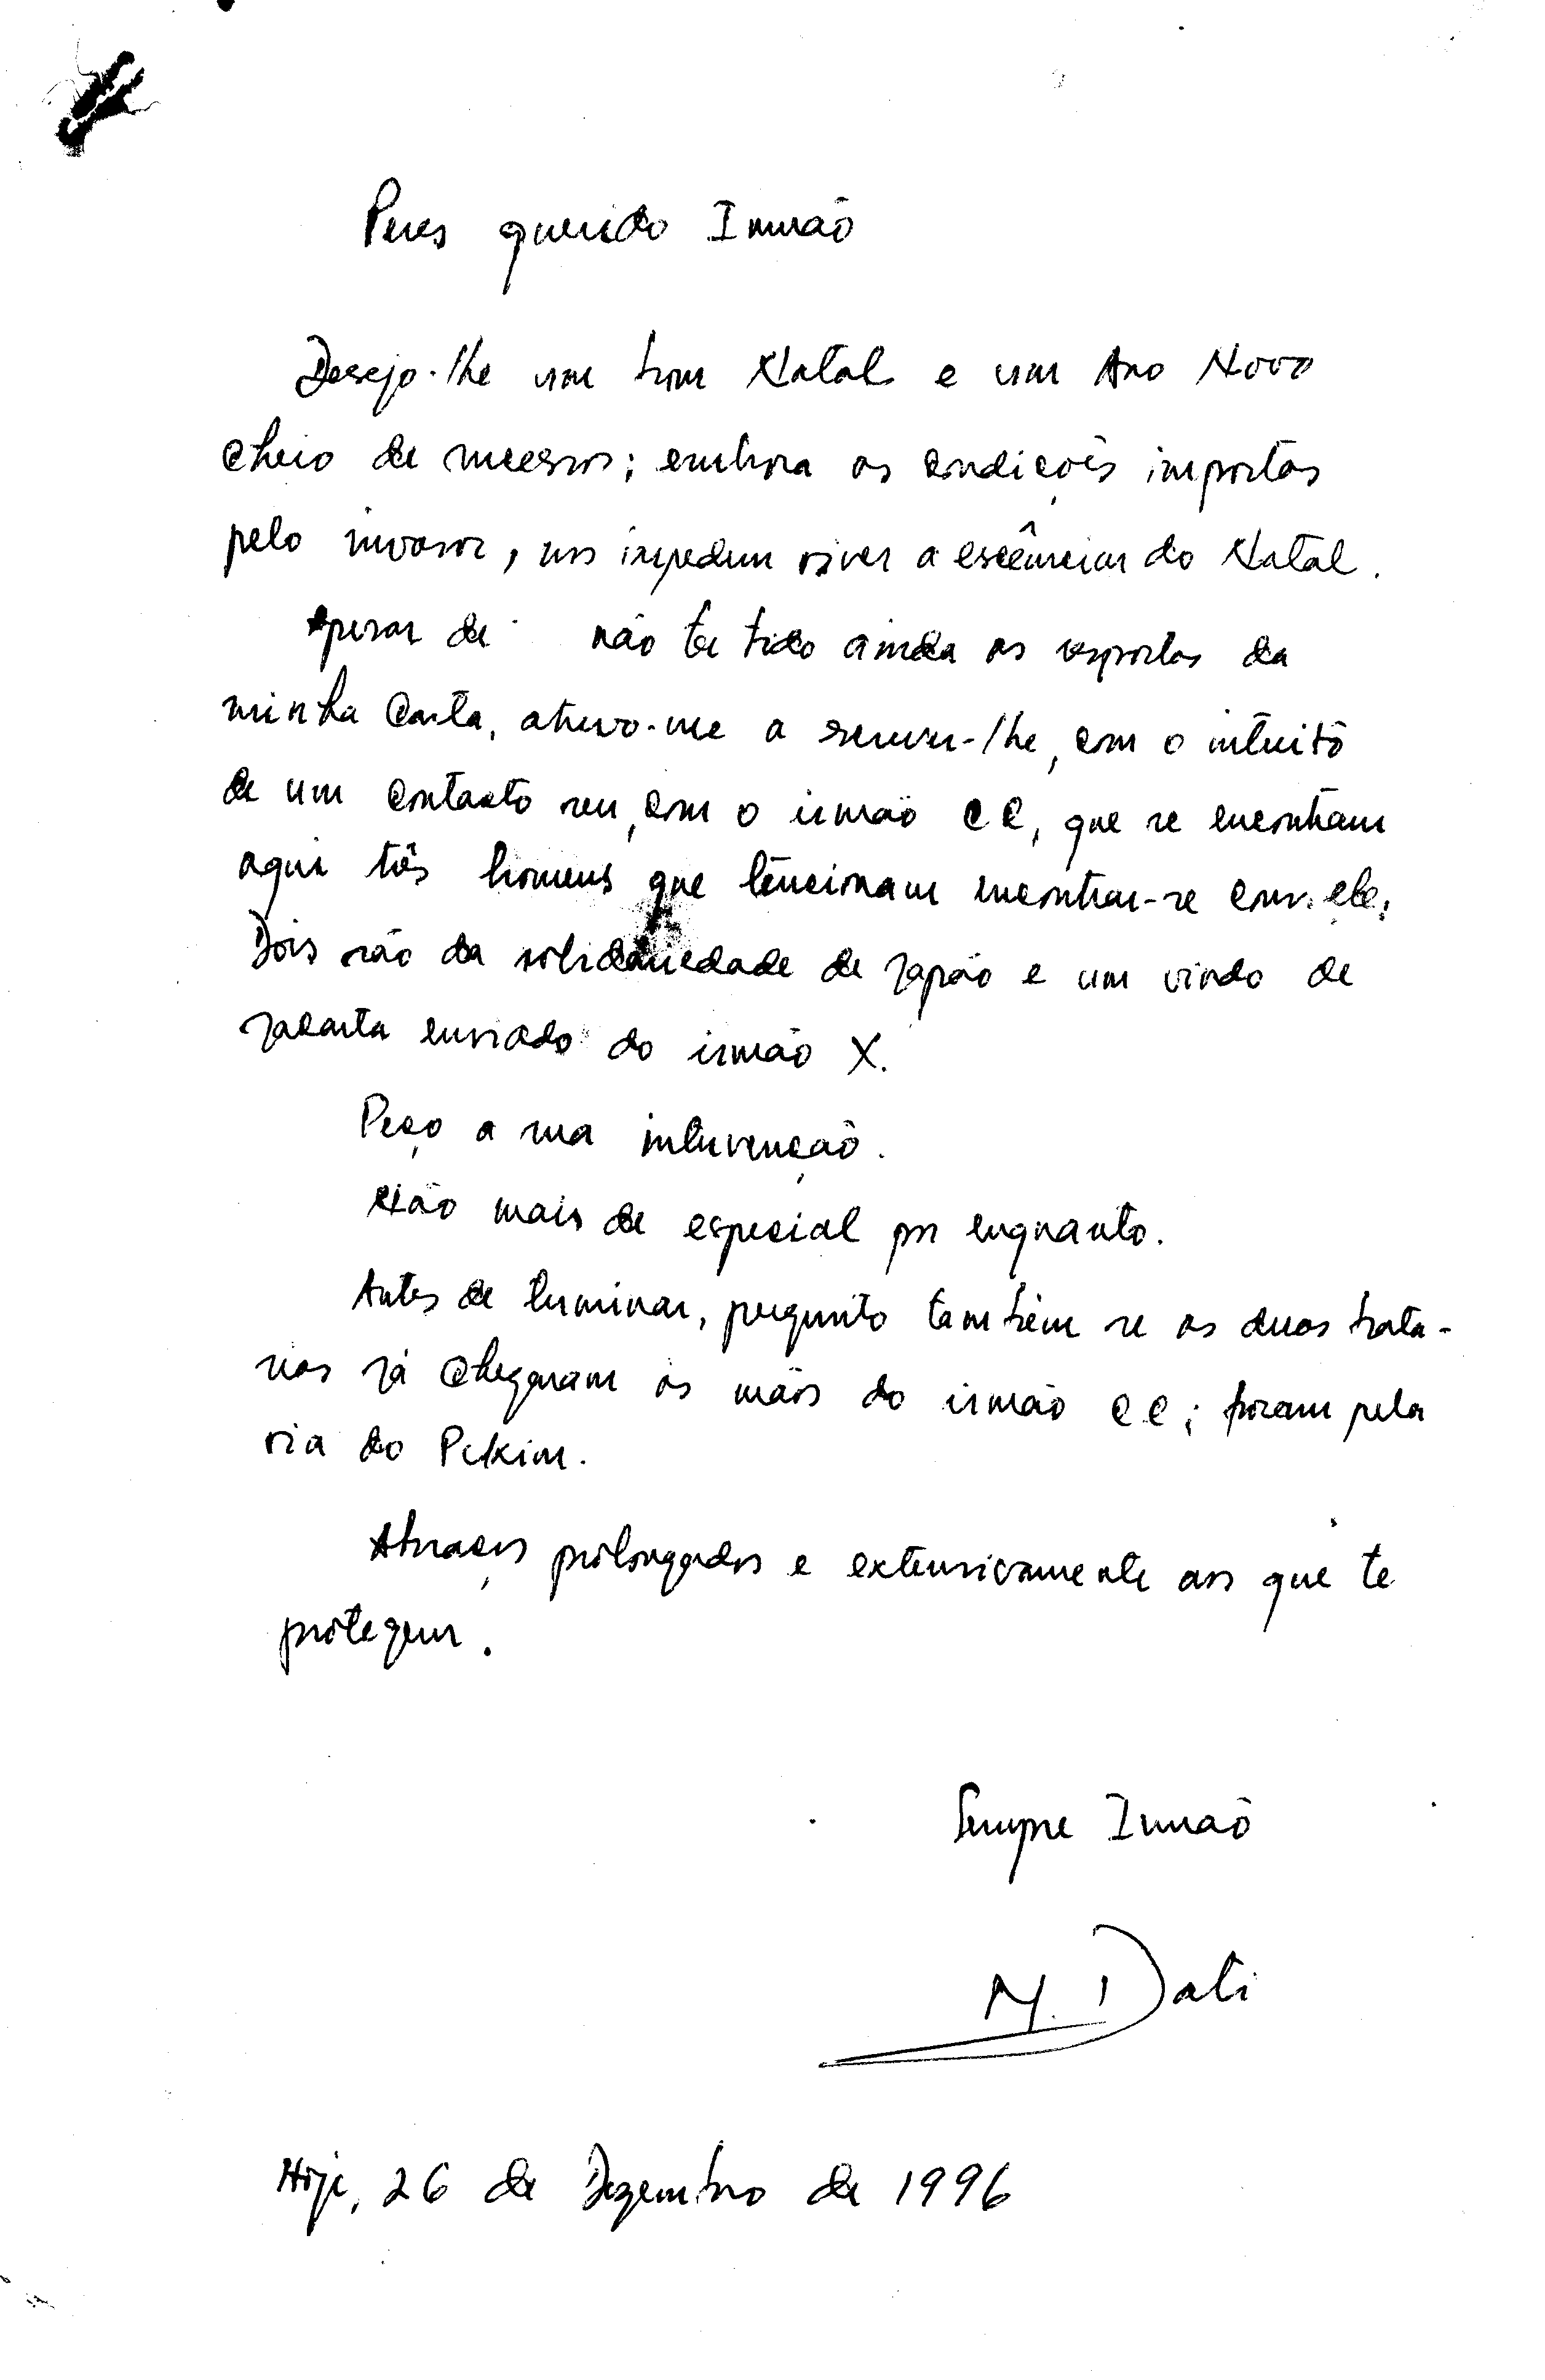 Peres querido Irmão
Desejo-lhe um bom Natal e um Ano Novo
cheio de sucessos; embora as condições impostas
pelo invasor, nos impedem viver a escência do Natal.
Apesar de não ter tido ainda as respostas da
minha carta, atrevo-me a screver-lhe, com o intuito
de um contacto seu, com o irmão CC, que se encontram
aqui três homens que tencionam encontrar-se com ele.
Dois são da solidariedade de Japão e um vindo de
Jacarta enviado do irmão X.
Peço a sua intervenção.
Não mais de especial por enquanto.
Antes de terminar, pergunto também se as duas bata-
rias já chegaram às mãos do irmão CC; foram pela
via do Pekim.
Abraços prolongados e extensivamente aos que te
protegem.
Sempre Irmão
M. Dati
Hoje, 26 de Dezembro de 1996